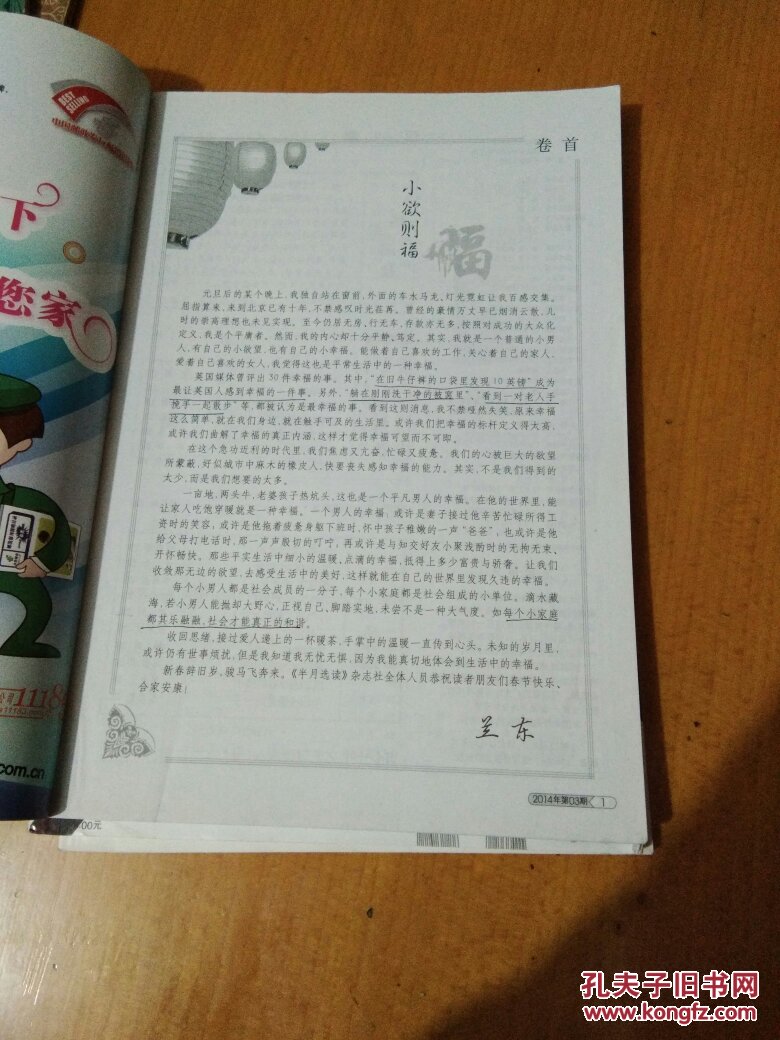 BEST
SELLING
下
您家
公司11184
com.cn
00元
卷 首
小欲则福
福
元旦后的某个晚上,我独自站在窗前,外面的车水马龙、灯光霓虹让我百感交集。
屈指算来,来到北京已有十年,不禁感叹时光荏苒。曾经的豪情万丈早已烟消云散,儿
时的崇高理想也未见实现。至今仍居无房,行无车,存款亦无多,按照对成功的大众化
定义,我是个平庸者。然而,我的内心却十分平静、笃定。其实,我就是一个普通的小男
人,有自己的小欲望,也有自己的小幸福。能做着自己喜欢的工作,关心着自己的家人,
爱着自己喜欢的女人,我觉得这也是平常生活中的一种幸福。
英国媒体曾评出30件幸福的事。其中,“在旧牛仔裤的口袋里发现10英镑”成为
最让英国人感到幸福的一件事。另外,“躺在刚刚洗干净的被窝里”、“看到一对老人手
挽手一起散步”等,都被认为是最幸福的事。看到这则消息,我不禁哑然失笑,原来幸福
这么简单,就在我们身边,就在触手可及的生活里。或许我们把幸福的标杆定义得太高,
或许我们曲解了幸福的真正内涵,这样才觉得幸福可望而不可即。
在这个急功近利的时代里,我们焦虑又亢奋,忙碌又疲惫。我们的心被巨大的欲望
所蒙蔽,好似城市中麻木的橡皮人,快要丧失感知幸福的能力。其实,不是我们得到的
太少,而是我们想要的太多。
一亩地,两头牛,老婆孩子热炕头,这也是一个平凡男人的幸福。在他的世界里,能
让家人吃饱穿暖就是一种幸福。一个男人的幸福,或许是妻子接过他辛苦忙碌所得工
资时的笑容,或许是他拖着疲惫身躯下班时,怀中孩子稚嫩的一声“爸爸”;也或许是他
给父母打电话时,那一声声殷切的叮咛,再或许是与知交好友小聚浅酌时的无拘无束、
开怀畅快。那些平实生活中细小的温暖、点滴的幸福,抵得上多少富贵与骄奢。让我们
收敛那无边的欲望,去感受生活中的美好,这样就能在自己的世界里发现久违的幸福。
每个小男人都是社会成员的一分子,每个小家庭都是社会组成的小单位。滴水藏
海,若小男人能抛却大野心,正视自己、脚踏实地,未尝不是一种大气度。如每个小家庭
都其乐融融,社会才能真正的和谐。
收回思绪,接过爱人递上的一杯暖茶,手掌中的温暖一直传到心头。未知的岁月里,
或许仍有世事烦扰,但是我知道我无忧无惧,因为我能真切地体会到生活中的幸福。
新春辞旧岁,骏马飞奔来。《半月选读》杂志社全体人员恭祝读者朋友们春节快乐、
合家安康!
兰东
2014年第03期 1
孔夫子旧书网
www.kongfz.com